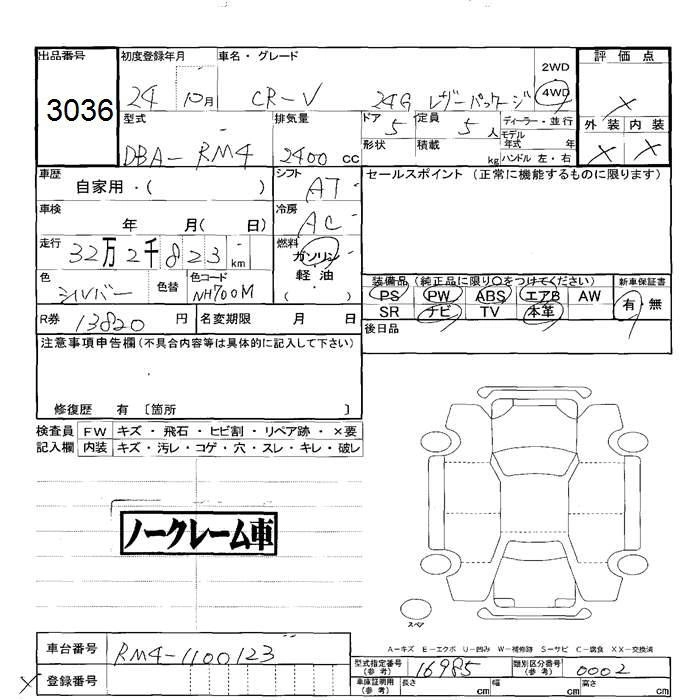 出品番号 初度登録年月 車名・グレード 評価点
3036 24 10月 CR-V 24G レザーパッケージ 2WD 4WD ×
型式 排気量 ドア 5 定員 5人 ディーラー・並行 外装 内装
DBA-RM4 2400 cc 形状 積載 kg モデル年式 年 ハンドル 左・右 × ×
車歴 自家用・( ) シフト AT セールスポイント (正常に機能するものに限ります)
車検 年 月( 日) 冷房 AC
走行 32万2千823 km 燃料 ガソリン 軽油 ( )
色 シルバー 色替 色コード NH700M
装備品 (純正品に限り○をつけてください) 新車保証書
PS PW ABS エアB AW 有・無
SR ナビ TV 本革
R券 13820 円 名変期限 月 日 後日品
注意事項申告欄(不具合内容等は具体的に記入して下さい)
修復歴 有 〔箇所 〕
検査員 FW キズ・飛石・ヒビ割・リペア跡・×要
記入欄 内装 キズ・汚レ・コゲ・穴・スレ・キレ・破レ
ノークレーム車
スペア
A-キズ E-エクボ U-凹み W-補修跡 S-サビ C-腐食 XX-交換済
車台番号 RM4-1100123
型式指定番号(参考) 16985 類別区分番号(参考) 0002
× 登録番号
車庫証明用(参考) 長さ cm 幅 cm 高さ cm